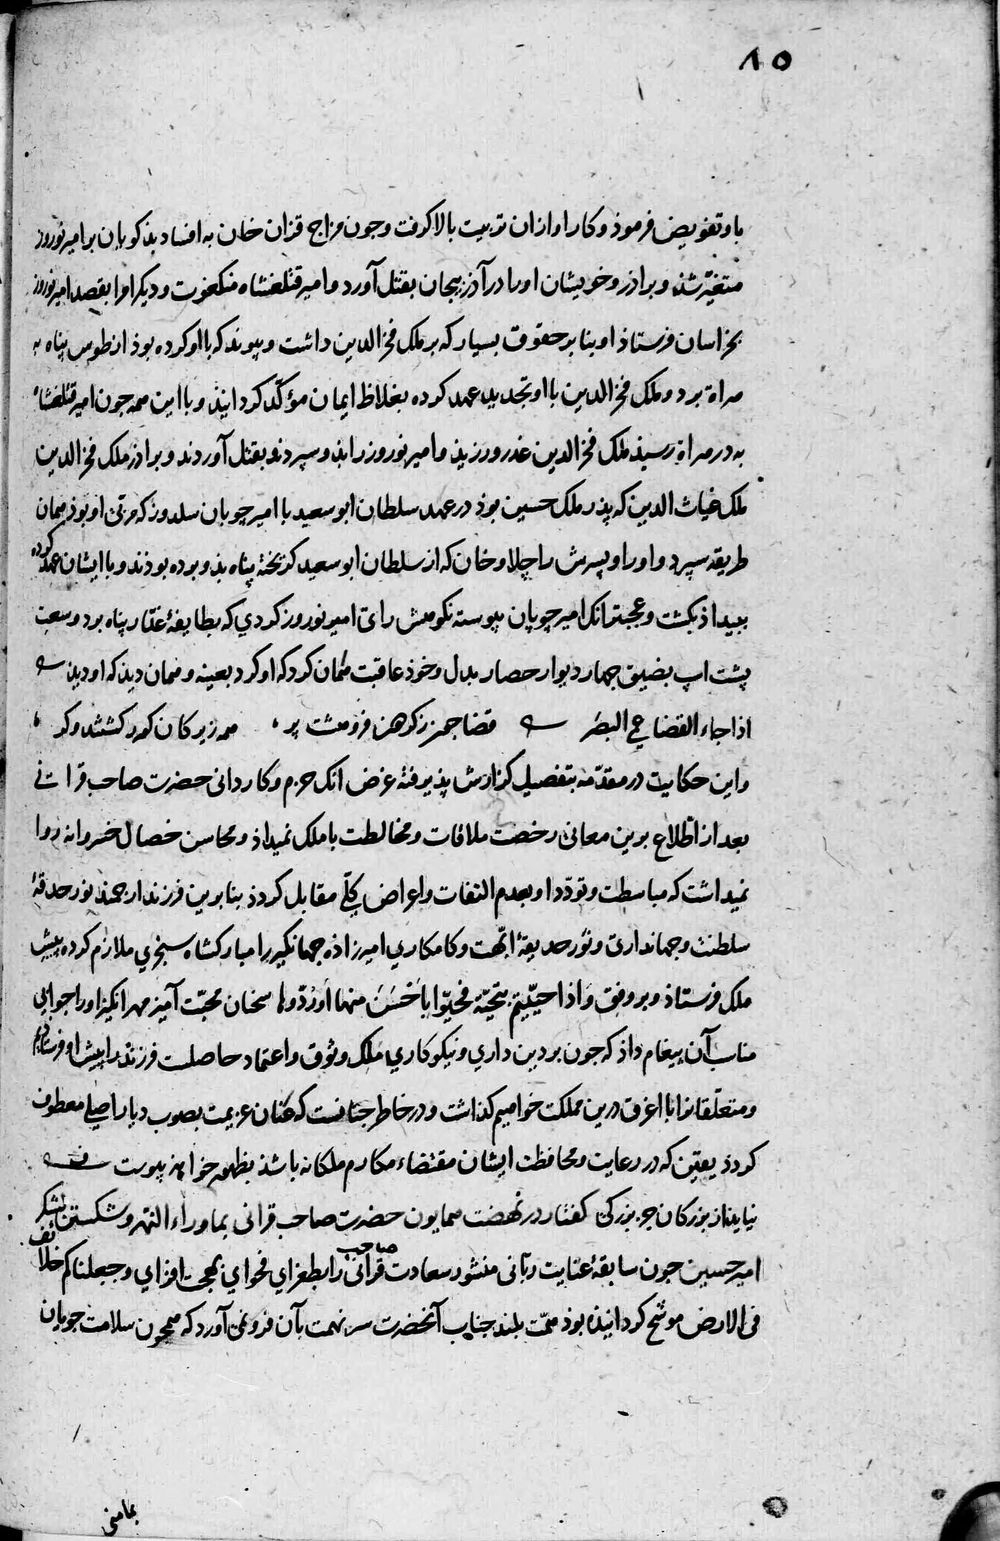 ٨٥
باو تفویض فرموذ و کار او ازان تربیت بالا کرفت و جون مزاج قزان خان به افساد بذکویان بر امیر نوروز
متغیّر شذ و براذر و خویشان او را در آذربیجان بقتل آورد و امیر قتلغشاه منکغوت و دیکر امرا بقصد امیر نوروز
بخراسان فرستاذ او بنابر حقوق بسیار که بر ملک فخر الدین داشت و پیوند که با او کرده بوذ از طوس پناه به
هراة برد و ملک فخر الدین با او تجدید عهد کرده بغلاظ ایمان مؤکّد کردانیذ و با این همه جون امیر قتلغشاه
به در هراة رسیذ ملک فخر الدین غدر ورزیذ و امیر نوروز را بذو سپرد تا بقتل آوردند و براذر ملک فخر الدین
ملک غیاث الدین که پذر ملک حسین بوذ در عهد سلطان ابو سعید با امیر چوپان سلدوز که مربّی او بوذ همان
طریقه سپرد و او را و پسرش را جلاو خان که از سلطان ابو سعید کریخته پناه بذو برده بوذند و با ایشان عهد کرده
ببیداذ بکشت و عجبتر انک امیر چوپان پیوسته نکوهش رای امیر نوروز کردی که بطایفۀ غدّار پناه برد و سعت
پشت اسپ بضیق چهار دیوار حصار بدل و خوذ عاقبت همان کرد که او کرد بعینه و همان دیذ که او دیذ
اذا جاء القضا عمی البصر قضا جون ز کردون فرو هشت پر همه زیرکان کور کشتند و کر
و این حکایت در مقدّمه بتفصیل کزارش پذیرفته غرض انک حزم و کاردانی حضرت صاحب قرانی
بعد از اطّلاع برین معانی رخصت ملاقات و مخالطت با ملک نمیداذ و محاسن خصال خسروانه روا
نمیداشت که مباسطت و تودّد او بعدم التفات و اعراض کلّی مقابل کردذ بنابرین فرزند ارجمند نور حدقۀ
سلطنت و جهانداری و نور حدیقۀ ابّهت و کامکاری امیرزاذه جهانکیر را مبارکشاه سنجری ملازم کرده پیش
ملک فرستاذ و بر وفق و اذا حیّیتم بتحیّة فحیّوا باحسن منها او ردّوها سخنان محبّت آمیز مهر انکیز او را جوابی
مناسب آن پیغام داذ که جون بر دین داری و نیکو کاری ملک وثوق و اعتماد حاصلست فرزند را پیش او فرستاذیم
و متعلّقانرا با اغرق درین مملکت خواهیم کذاشت و در خاطر جنانست که عنان عزیمت بصوب دیار اصلی معطوف
کردذ یقین که در رعایت و محافظت ایشان مقتضاء مکارم ملکانه باشذ بظهور خواهذ پیوست
نیایذ از بزرکان جز بزرکی کفتار در نهضت همایون حضرت صاحب قرانی بماوراء النهر و شکستن لشکر
امیر حسین جون سابقۀ عنایت ربّانی منشور سعادت صاحب قرانی را بطغرای فحوای بهجت افزای و جعلناکم خلائف
فی الارض موشّح کردانیذه بوذ همّت بلند جناب آنحضرت سر نهمت بآن فرو نمی آورد که همچون سلامت جویان
بمامنی